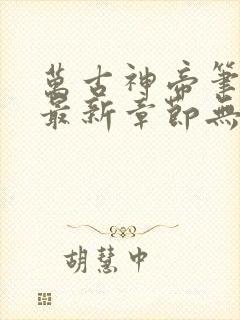 萬古神帝筆
最新章節無
胡慧中